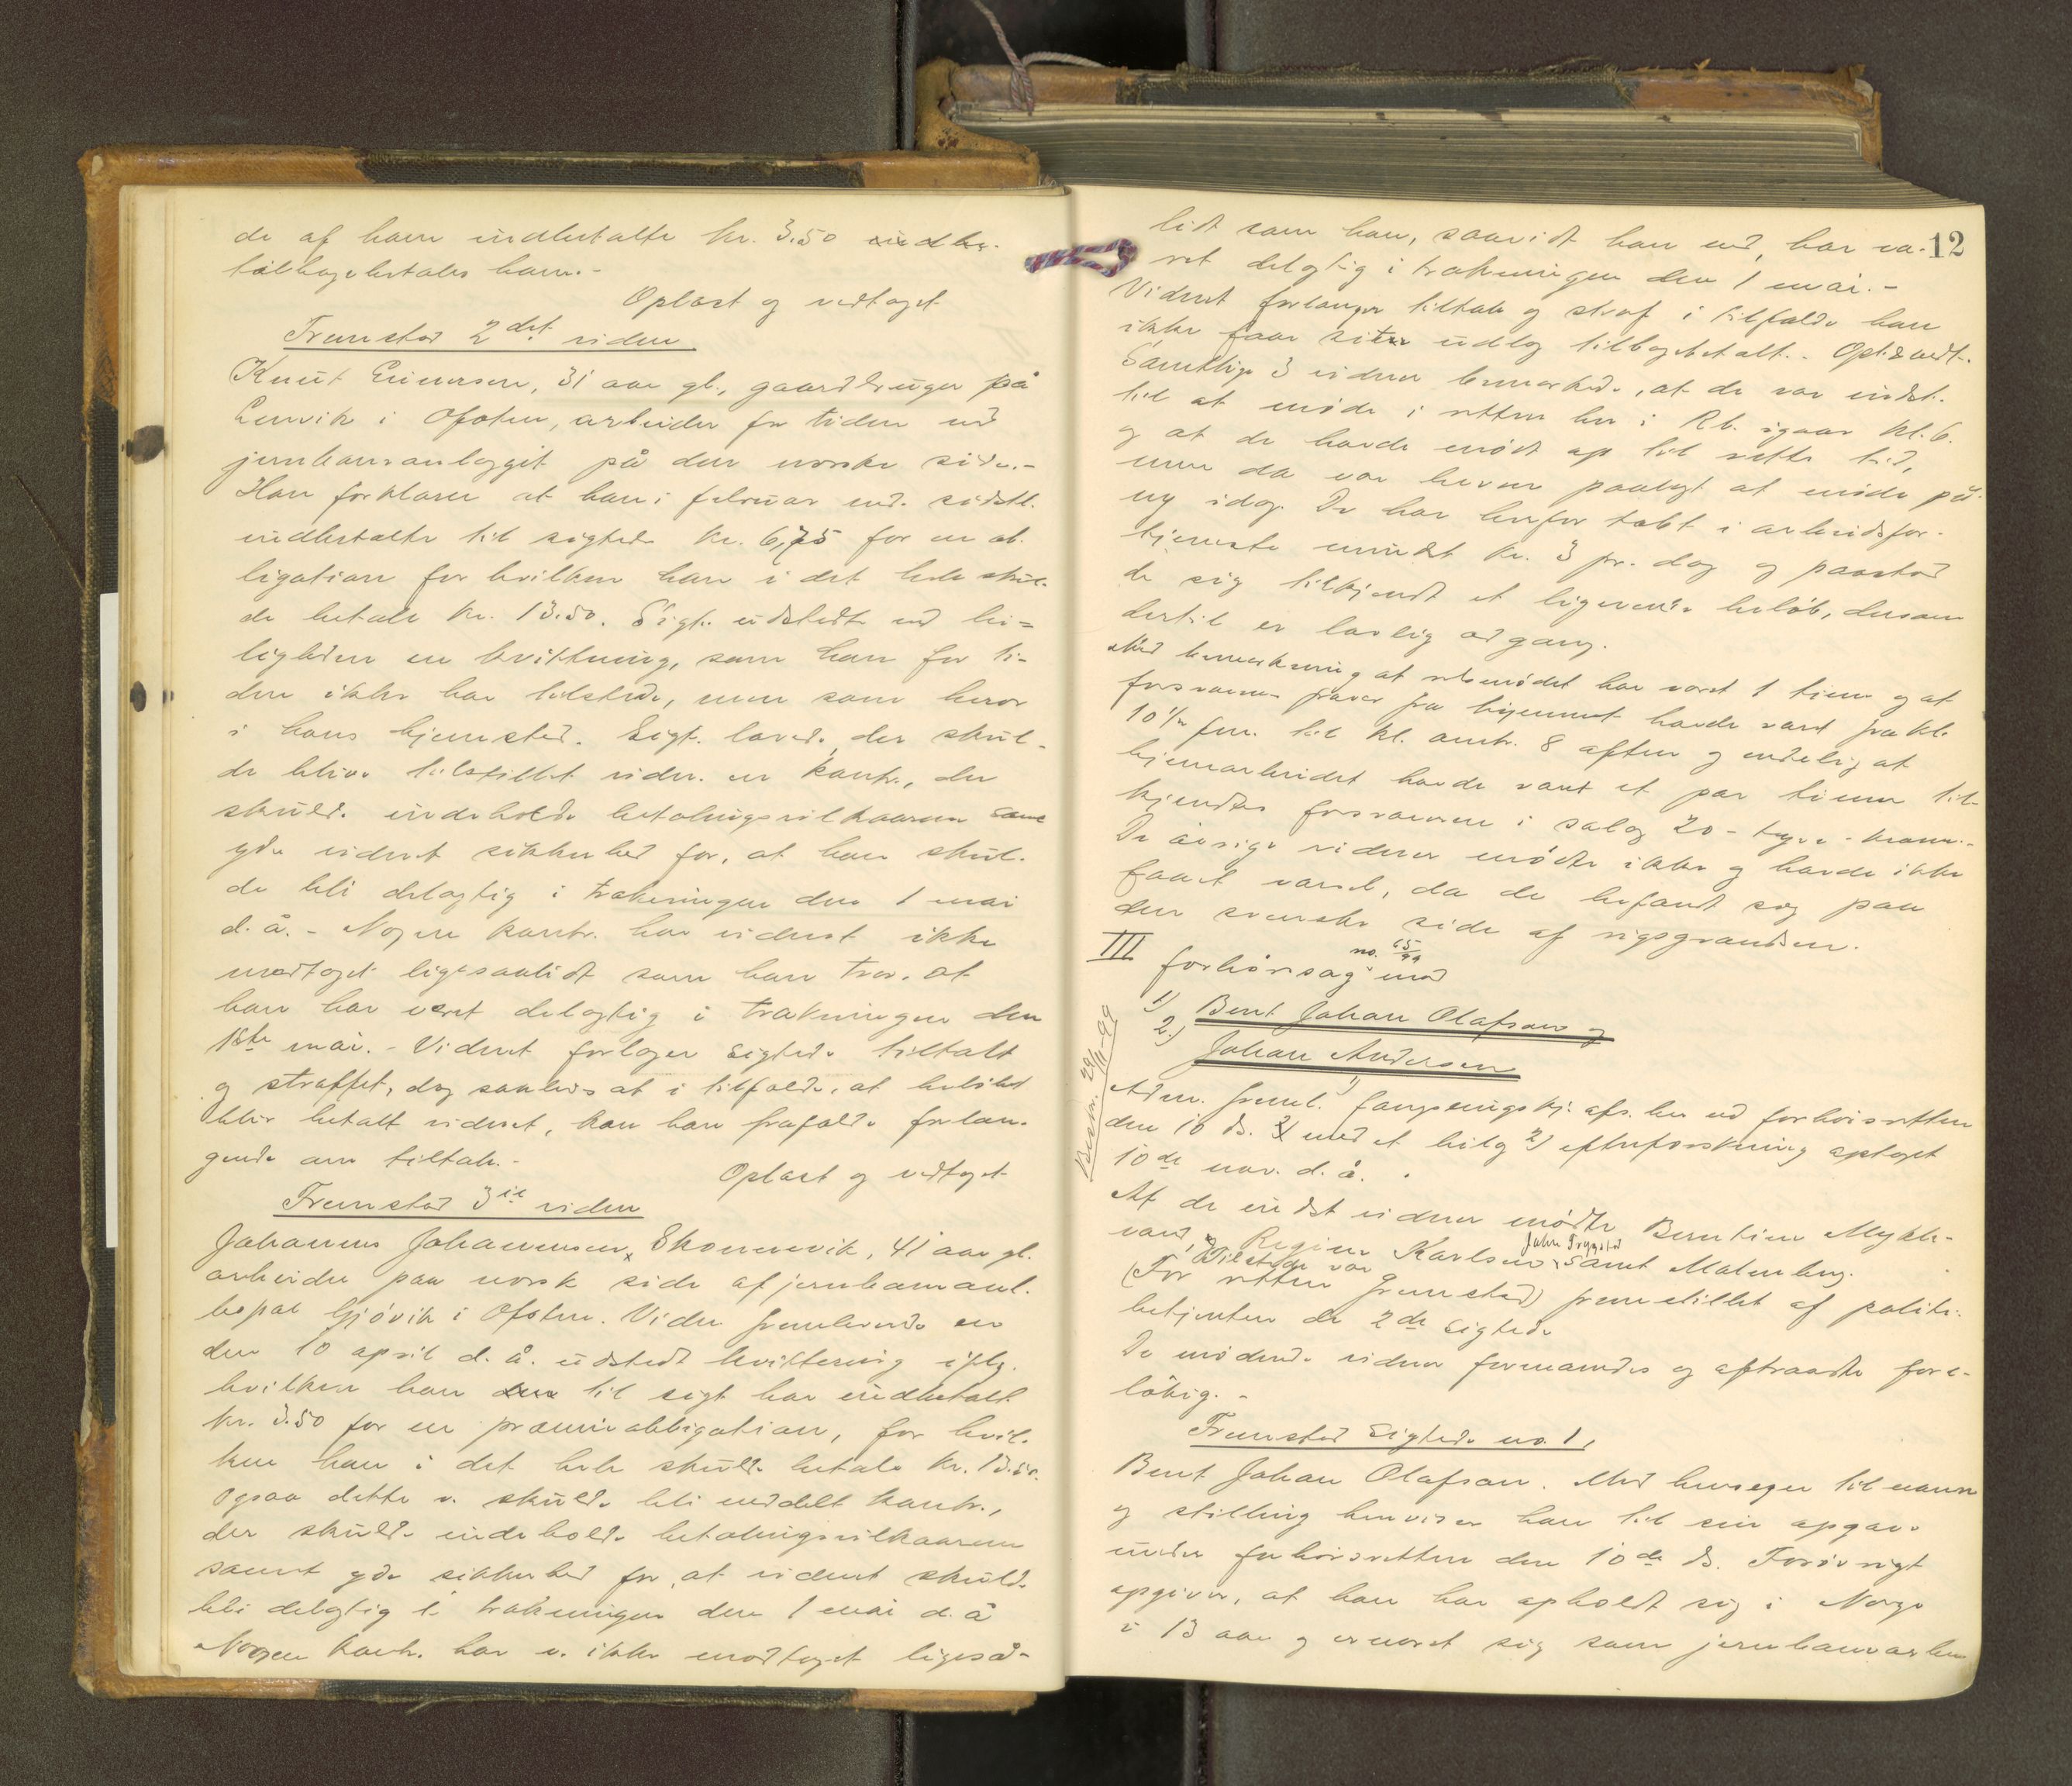 de af ham indbetalte kr. 3.50 indbe-
tilbagebetales ham.-
Oplæst og vedtaget
Fremstod 2det vidne
Knut Einersen, 31 aar gl., gaardbruger på
Lenvik i Ofoten, arbeider for tiden ved
jernbaneanlægget på den norske side.-
Han forklarer at han i februar md. sidstl.
indbetalte til sigtede kr. 6,75 for en ob-
ligation for hvilken han i det hele skul-
de betale kr. 13.50. Sigt. udstedte ved lei=
ligheden en kvittering, som han for ti-
den ikke har tilstede, men som beror
i hans hjemsted. Sigt. lovede, der skul-
de blive tilstillet vidn. en kontr., der
skulde indeholde betalingsvilkaarene samt
yde vidnet sikkerhed for, at han skul-
de bli delagtig i trækningen den 1 mai
d. å. - Nogen kontr. har vidnet ikke
modtaget ligesaalidt som han tror, at
han har været delagtig i trækningen den
1ste mai. - Vidnet forlanger sigtede tiltalt
og straffet, dog saaledes at i tilfælde, at beløbet
blir betalt vidnet, kan han frafalde forlan-
gende om tiltale.-
Oplæst og vedtaget
Fremstod 3die vidne
Johannes Johannessen, Skonsevik, 41 aar gl.
arbeider paa norsk side af jernbaneanl.
bopæl Gjövik i Ofoten. Vidne fremleverede en
den 10 april d. å. udstedt kvittering ifølg.
hvilken han den til sigt. har indbetalt
kr. 3.50 for en præmieobligation, for hvil-
ken han i det hele skulde betale kr. 13.50.
Ogsaa dette v. skulde bli meddelt kontr.,
der skulde indeholde betalingsvilkaarene
samt yde sikkerhed for, at vidnet skulde
bli delagtig i trækningen den 1 mai d. å
Nogen kontr. har v. ikke modtaget ligeså-
12
lidt som han, saavidt han ved, har væ-
ret delagtig i trækningen den 1 mai.-
Vidnet forlanger tiltale og straf i tilfælde han
ikke faar sit udlæg tilbagebetalt. - Opl. & vedt.
Samtlige 3 vidner bemærkede, at de var indst.
til at møde i retten her i Rb. igaar kl. 6.
og at de havde mødt op til rette tid,
men da var bleven paalagt at møde på
ny idag. De har derfor tabt i arbeidsfor-
tjeneste mindst kr. 3 pr. dag og paastod
de sig tilkjendt et ligevende beløb, dersom
dertil er lovlig adgang.
Med bemerkning at retsmødet har varet 1 time og at
forsvarens fravær fra hjemmet havde varet fra kl.
10½ fm. til kl. omtr. 8 aften og endelig at
hjemarbeidet havde varet et par timer til-
kjendtes forsvareren i salær 20 - tyve - kroner.-
De øvrige vidner mødte ikke og havde ikke
faaet varsel, da de befandt sig paa
den svenske side af rigsgrændsen.
III forhørssag no. 65/99 mod
1) Bernt Johan Olafsen og
2.) Johan Andersen
Beskr. 29/11-99
Adm. freml. 1) fængslingskj. afs. her ved forhørsretten
den 10 ds. med et bilag 2) efterforskning optaget
10de nov. d. å.
Af de indst. vidner mødte Berntine Mykle-
vand, Regine Karlsen, John Trygstad samt Malmberg.
Tilstede var
(For retten fremstod) fremstillet af politi-
betjenten de 2de sigtede
De mødende vidner formanedes og aftraadte fore-
løbig.-
Fremstod sigtede no. 1,
Bernt Johan Olafsen. Med hensyn til navn
og stilling henviser han til sin opgave
under forhørsretten den 10de ds. Forøvrigt
opgiver, at han har opholdt sig i Norge
i 13 aar og ernæret sig som jernbanearbei